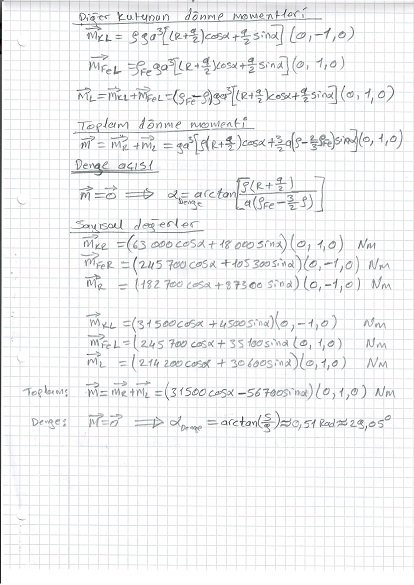 Diğer kutunun dönme momentleri
M_KL = ρga³[(R+a/2)cosα+a/2 sinα](0,-1,0)
M_FeL = ρ_Fe ga³[(R+a/2)cosα+a/2 sinα](0,1,0)
M_L = M_KL+M_FeL = (ρ_Fe-ρ)ga³[(R+a/2)cosα+a/2 sinα](0,1,0)
Toplam dönme momenti
M = M_R+M_L = ga³[ρ(R+a/2)cosα+3/2 a(ρ-2/3 ρ_Fe)sinα](0,1,0)
Denge açısı
M=0 ⟹ α_Denge = arctan[ρ(R+a/2)/a(ρ_Fe-3/2 ρ)]
Sayısal değerler
M_KR = (63 000cosα+18 000sinα)(0,1,0) Nm
M_FeR = (245 700cosα+105 300sinα)(0,-1,0) Nm
M_R = (182 700cosα+87300sinα)(0,-1,0) Nm
M_KL = (31500cosα+4500sinα)(0,-1,0) Nm
M_FeL = (245 700cosα+35100sinα)(0,1,0) Nm
M_L = (214 200cosα+30600sinα)(0,1,0) Nm
Toplam: M = M_R+M_L = (31500cosα-56700sinα)(0,1,0) Nm
Denge: M=0 ⟹ α_Denge = arctan(5/9)≈0,51Rad≈29,05°